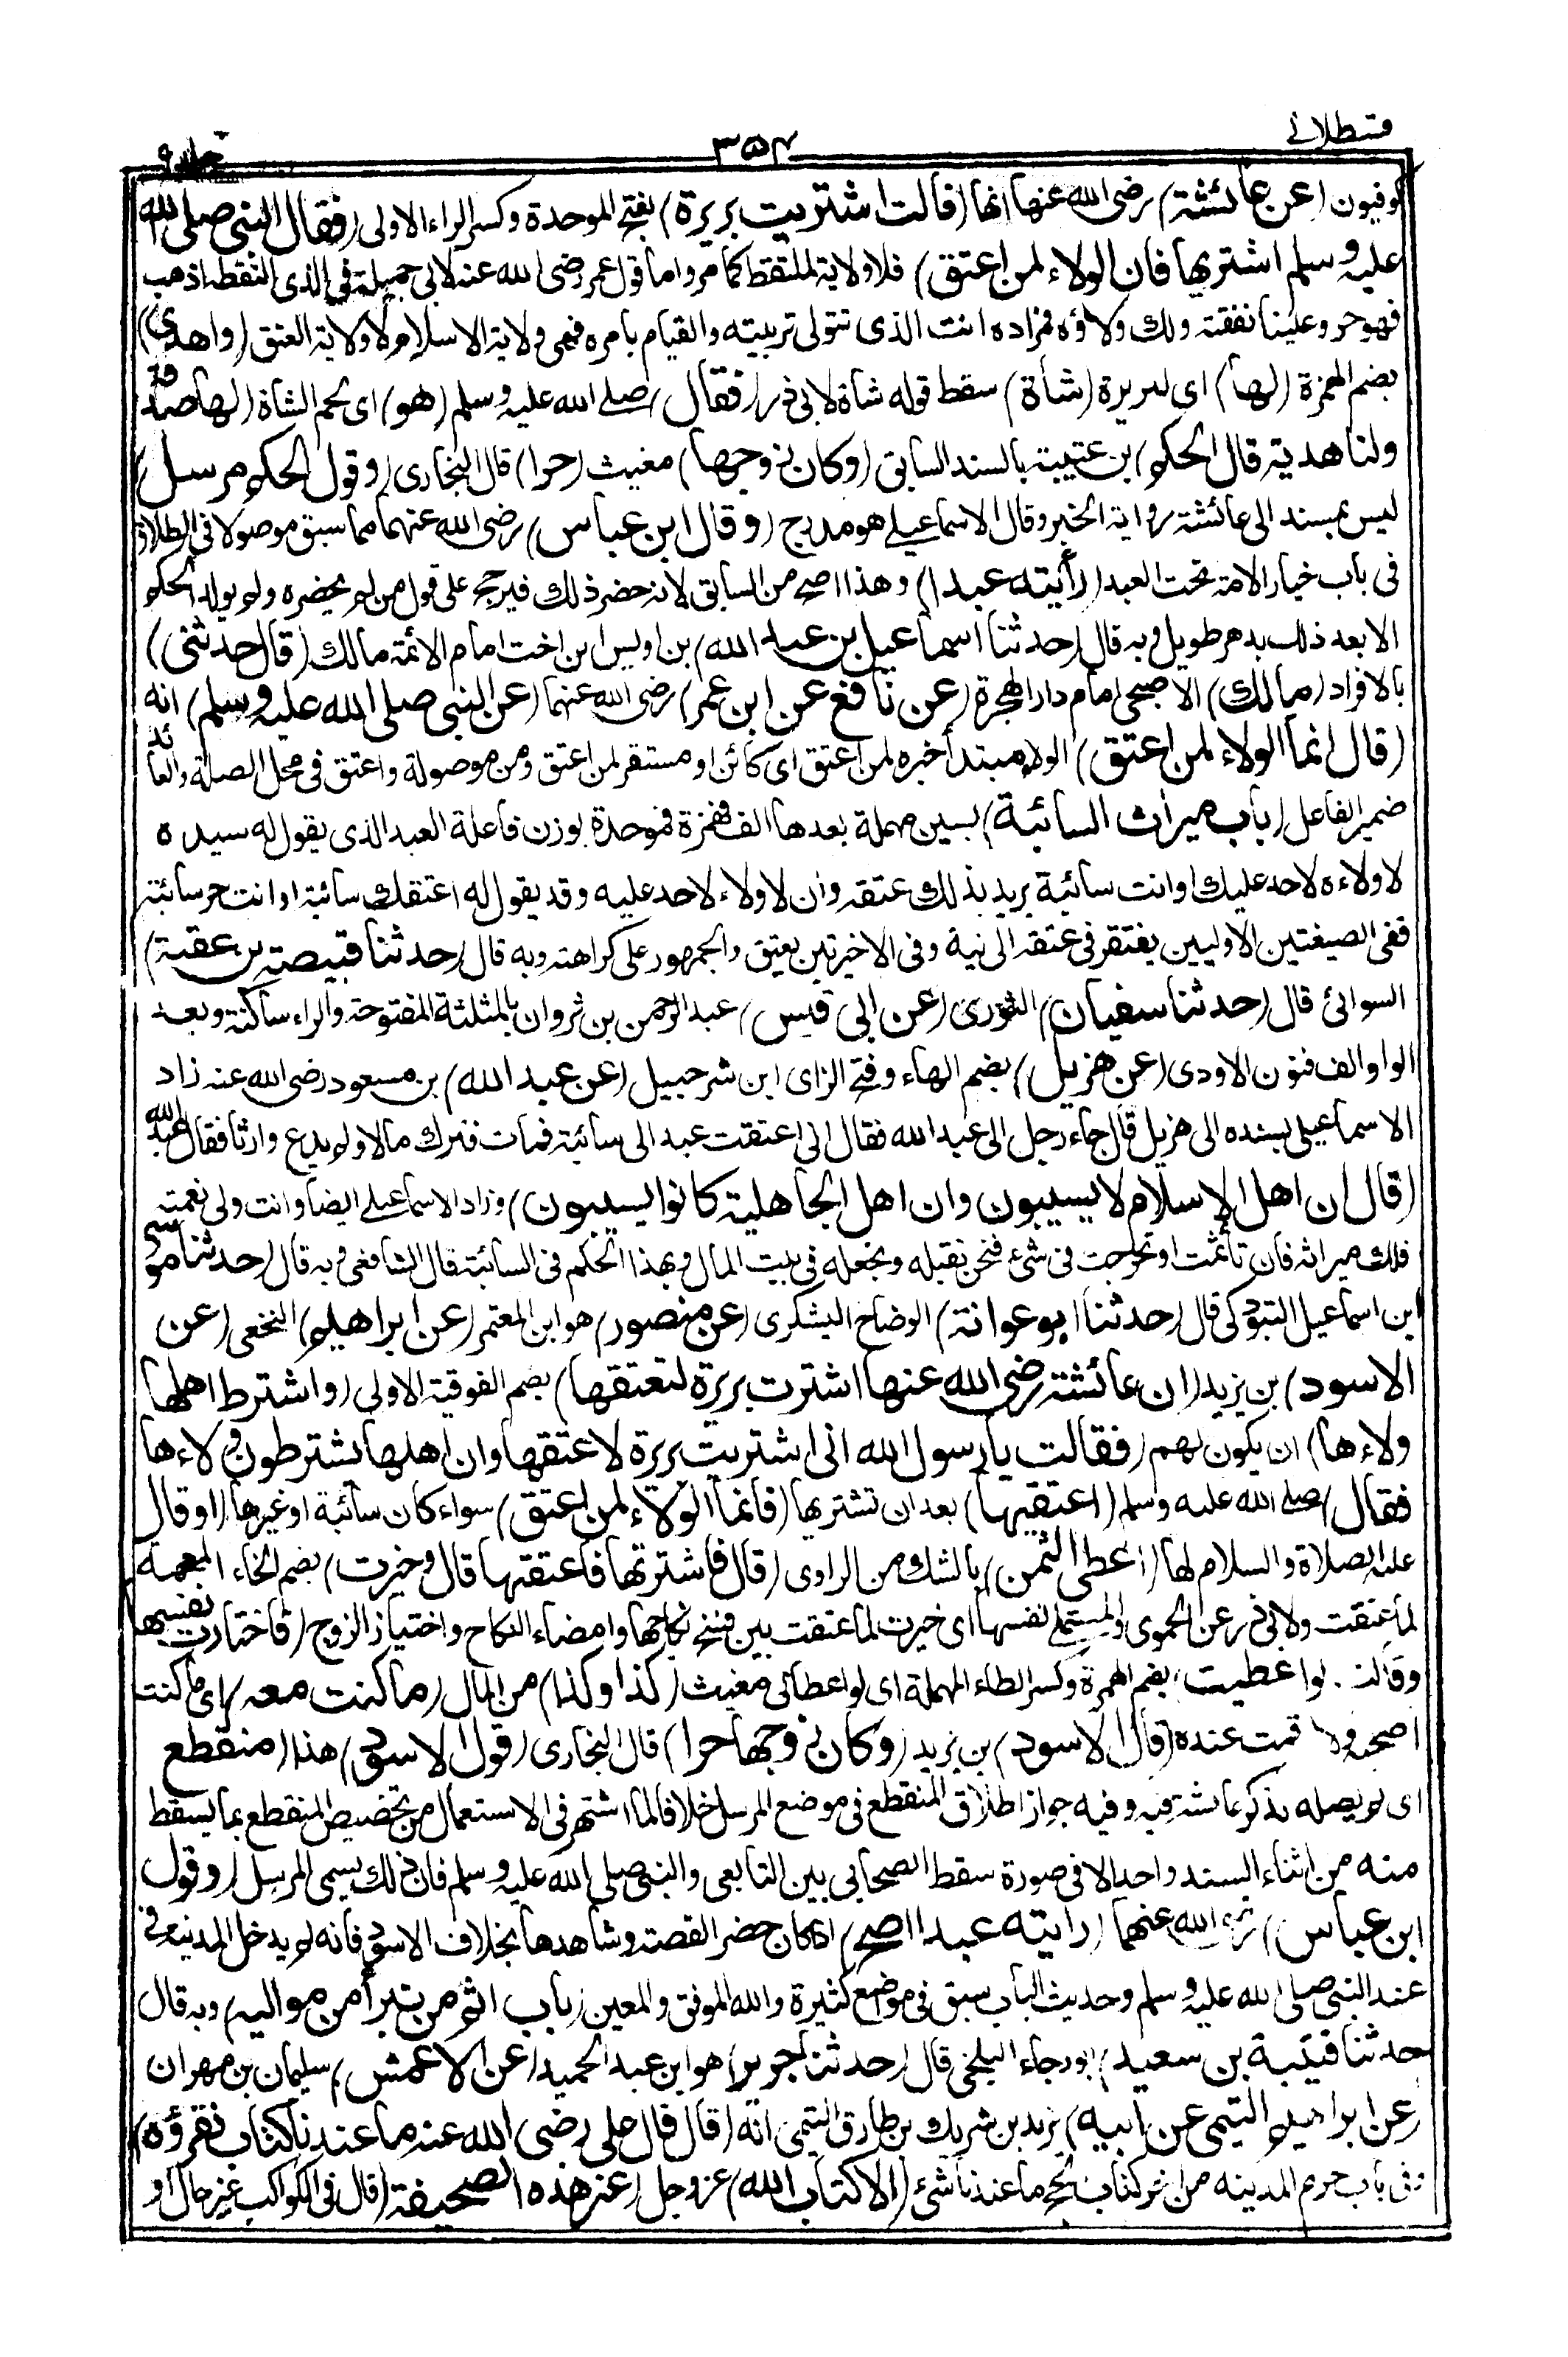 قسطلانے
٣٥٤
جلد ٩
كوفيون (عن عائشة) رضى الله عنها انها (قالت اشتريت بريرة) بفتح الموحدة وكسر الراء الاولى (فقال النبى صلى الله
عليه وسلم اشتريها فان الولاء لمن اعتق) فلا ولاية للملتقط كما مر واما قول عمر رضى الله عنه لابى جميلة فى الذى التقطه اذهب
فهو حر وعلينا نفقته ولك ولاؤه فمراده انت الذى تتولى تربيته والقيام بامره فهى ولاية الاسلام لا ولاية العتق (واهدى)
بضم الهمزة (لها) اى لبريرة (شاة) سقط قوله شاة لابى ذر (فقال) صلے الله عليه وسلم (هو) اى لحم الشاة (لها صدقة
ولنا هدية قال الحكم) بن عتيبة بالسند السابق (وكان زوجها) مغيث (حرا) قال البخارى (وقول الحكم مرسل)
ليس بمسند الى عائشة رواية الخبر وقال الاسماعيلے هو مدرج (وقال ابن عباس) رضى الله عنهما مما سبق موصولا فى الطلاق
فى باب خيار الامة تحت العبد (رأيته عبدا) وهذا اصح من السابق لانه حضر ذلك فيرجح على قول من لم يحضره ولم يولد الحكم
الا بعد ذلك بدهر طويل وبه قال (حدثنا اسماعيل بن عبد الله) بن اويس ابن اخت امام الائمة مالك (قال حدثنى)
بالافراد (مالك) الاصبحى امام دار الهجرة (عن نافع عن ابن عمر) رضى الله عنهما (عن النبى صلى الله عليه وسلم) انه
(قال انما الولاء لمن اعتق) الولاء مبتدأ خبره لمن اعتق اى كائن او مستقر لمن اعتق ومن موصولة واعتق فى محل الصلة والعائد
ضمير الفاعل (باب ميراث السائبة) بسين مهملة بعدها الف فهمزة فموحدة بوزن فاعلة العبد الذى يقول له سيده
لا ولاء لاحد عليك او انت سائبة يريد بذلك عتقه وان لا ولاء لاحد عليه وقد يقول له اعتقتك سائبة او انت حر سائبة
ففى الصيغتين الاوليين يفتقر فى عتقه الى نية وفى الاخيرتين يعتق والجمهور على كراهته وبه قال (حدثنا قبيصة بن عقبة)
السوائى قال (حدثنا سفيان) الثورى (عن ابى قيس) عبد الرحمن بن ثروان بالمثلثة المفتوحة والراء ساكنة وبعد
الواو الف فنون الاودى (عن هزيل) بضم الهاء وفتح الزاى ابن شرحبيل (عن عبد الله) بن مسعود رضى الله عنه زاد
الاسماعيلى بسنده الى هزيل قال جاء رجل الى عبد الله فقال انى اعتقت عبدا لى سائبة فمات فترك مالا ولم يدع وارثا فقال عبد الله
(قال ان اهل الاسلام لا يسيبون وان اهل الجاهلية كانوا يسيبون) وزاد الاسماعيلے ايضا وانت ولى نعمته
فلك ميراثه فان تأثمت او تحرجت فى شئ فنحن نقبله ونجعله فى بيت المال وبهذا الحكم فى السائبة قال الشافعى وبه قال (حدثنا موسى)
ابن اسماعيل التبوذكى قال (حدثنا ابو عوانة) الوضاح اليشكرى (عن منصور) هو ابن المعتمر (عن ابراهيم) النخعى (عن
الاسود) بن يزيد (ان عائشة رضى الله عنها اشترت بريرة لتعتقها) بضم الفوقية الاولى (واشترط اهلها
ولاءها) ان يكون لهم (فقالت يا رسول الله انى اشتريت بريرة لاعتقها وان اهلها يشترطون ولاءها
فقال) صلے الله عليه وسلم (اعتقيها) بعد ان تشتريها (فانما الولاء لمن اعتق) سواء كان سائبة او غيرها (او قال
عليه الصلاة والسلام لها (اعطى الثمن) بالشك من الراوى (قال فاشترتها فاعتقتها قال وخيرت) بضم الخاء المعجمة
لما عتقت ولابى ذر عن الحموى والمستملى نفسها اى خيرت لما عتقت بين فسخ نكاحها وامضاء النكاح واختيار الزوج (فاختارت نفسها
وقالت لو اعطيت) بضم الهمزة وكسر الطاء المهملة اى لو اعطانى مغيث (كذا وكذا) من المال (ما كنت معه) اى ما كنت
اصحبه ولا قمت عنده (قال الاسود) بن يزيد (وكان زوجها حرا) قال البخارى (قول الاسود) هذا (منقطع
اى لم يصله بذكر عائشة فيه وفيه جواز اطلاق المنقطع فى موضع المرسل خلافا لما اشتهر فى الاستعمال من تخصيص المنقطع بما يسقط
منه من اثناء السند واحد الا فى صورة سقط الصحابى بين التابعى والنبى صلى الله عليه وسلم فان ذلك يسمى المرسل (وقول
ابن عباس) رضى الله عنهما (رايته عبدا اصح) اذ كان حضر القصة وشاهدها بخلاف الاسود فانه لم يدخل المدينة فى
عند النبى صلى الله عليه وسلم وحديث الباب سبق فى مواضع كثيرة والله الموفق والمعين (باب اثم من تبرأ من مواليه) وبه قال
حدثنا قتيبة بن سعيد) ابو رجاء البلخى قال (حدثنا جرير) هو ابن عبد الحميد (عن الاعمش) سليمان بن مهران
(عن ابراهيم التيمى عن ابيه) يزيد بن شريك بن طارق التيمى انه (قال قال على رضى الله عنه ما عندنا كتاب نقرؤه)
وفى باب حرم المدينة من اخر كتاب الحج ما عندنا شئ (الا كتاب الله) عز وجل (غير هذه الصحيفة) (قال فى الكواكب غير حال او